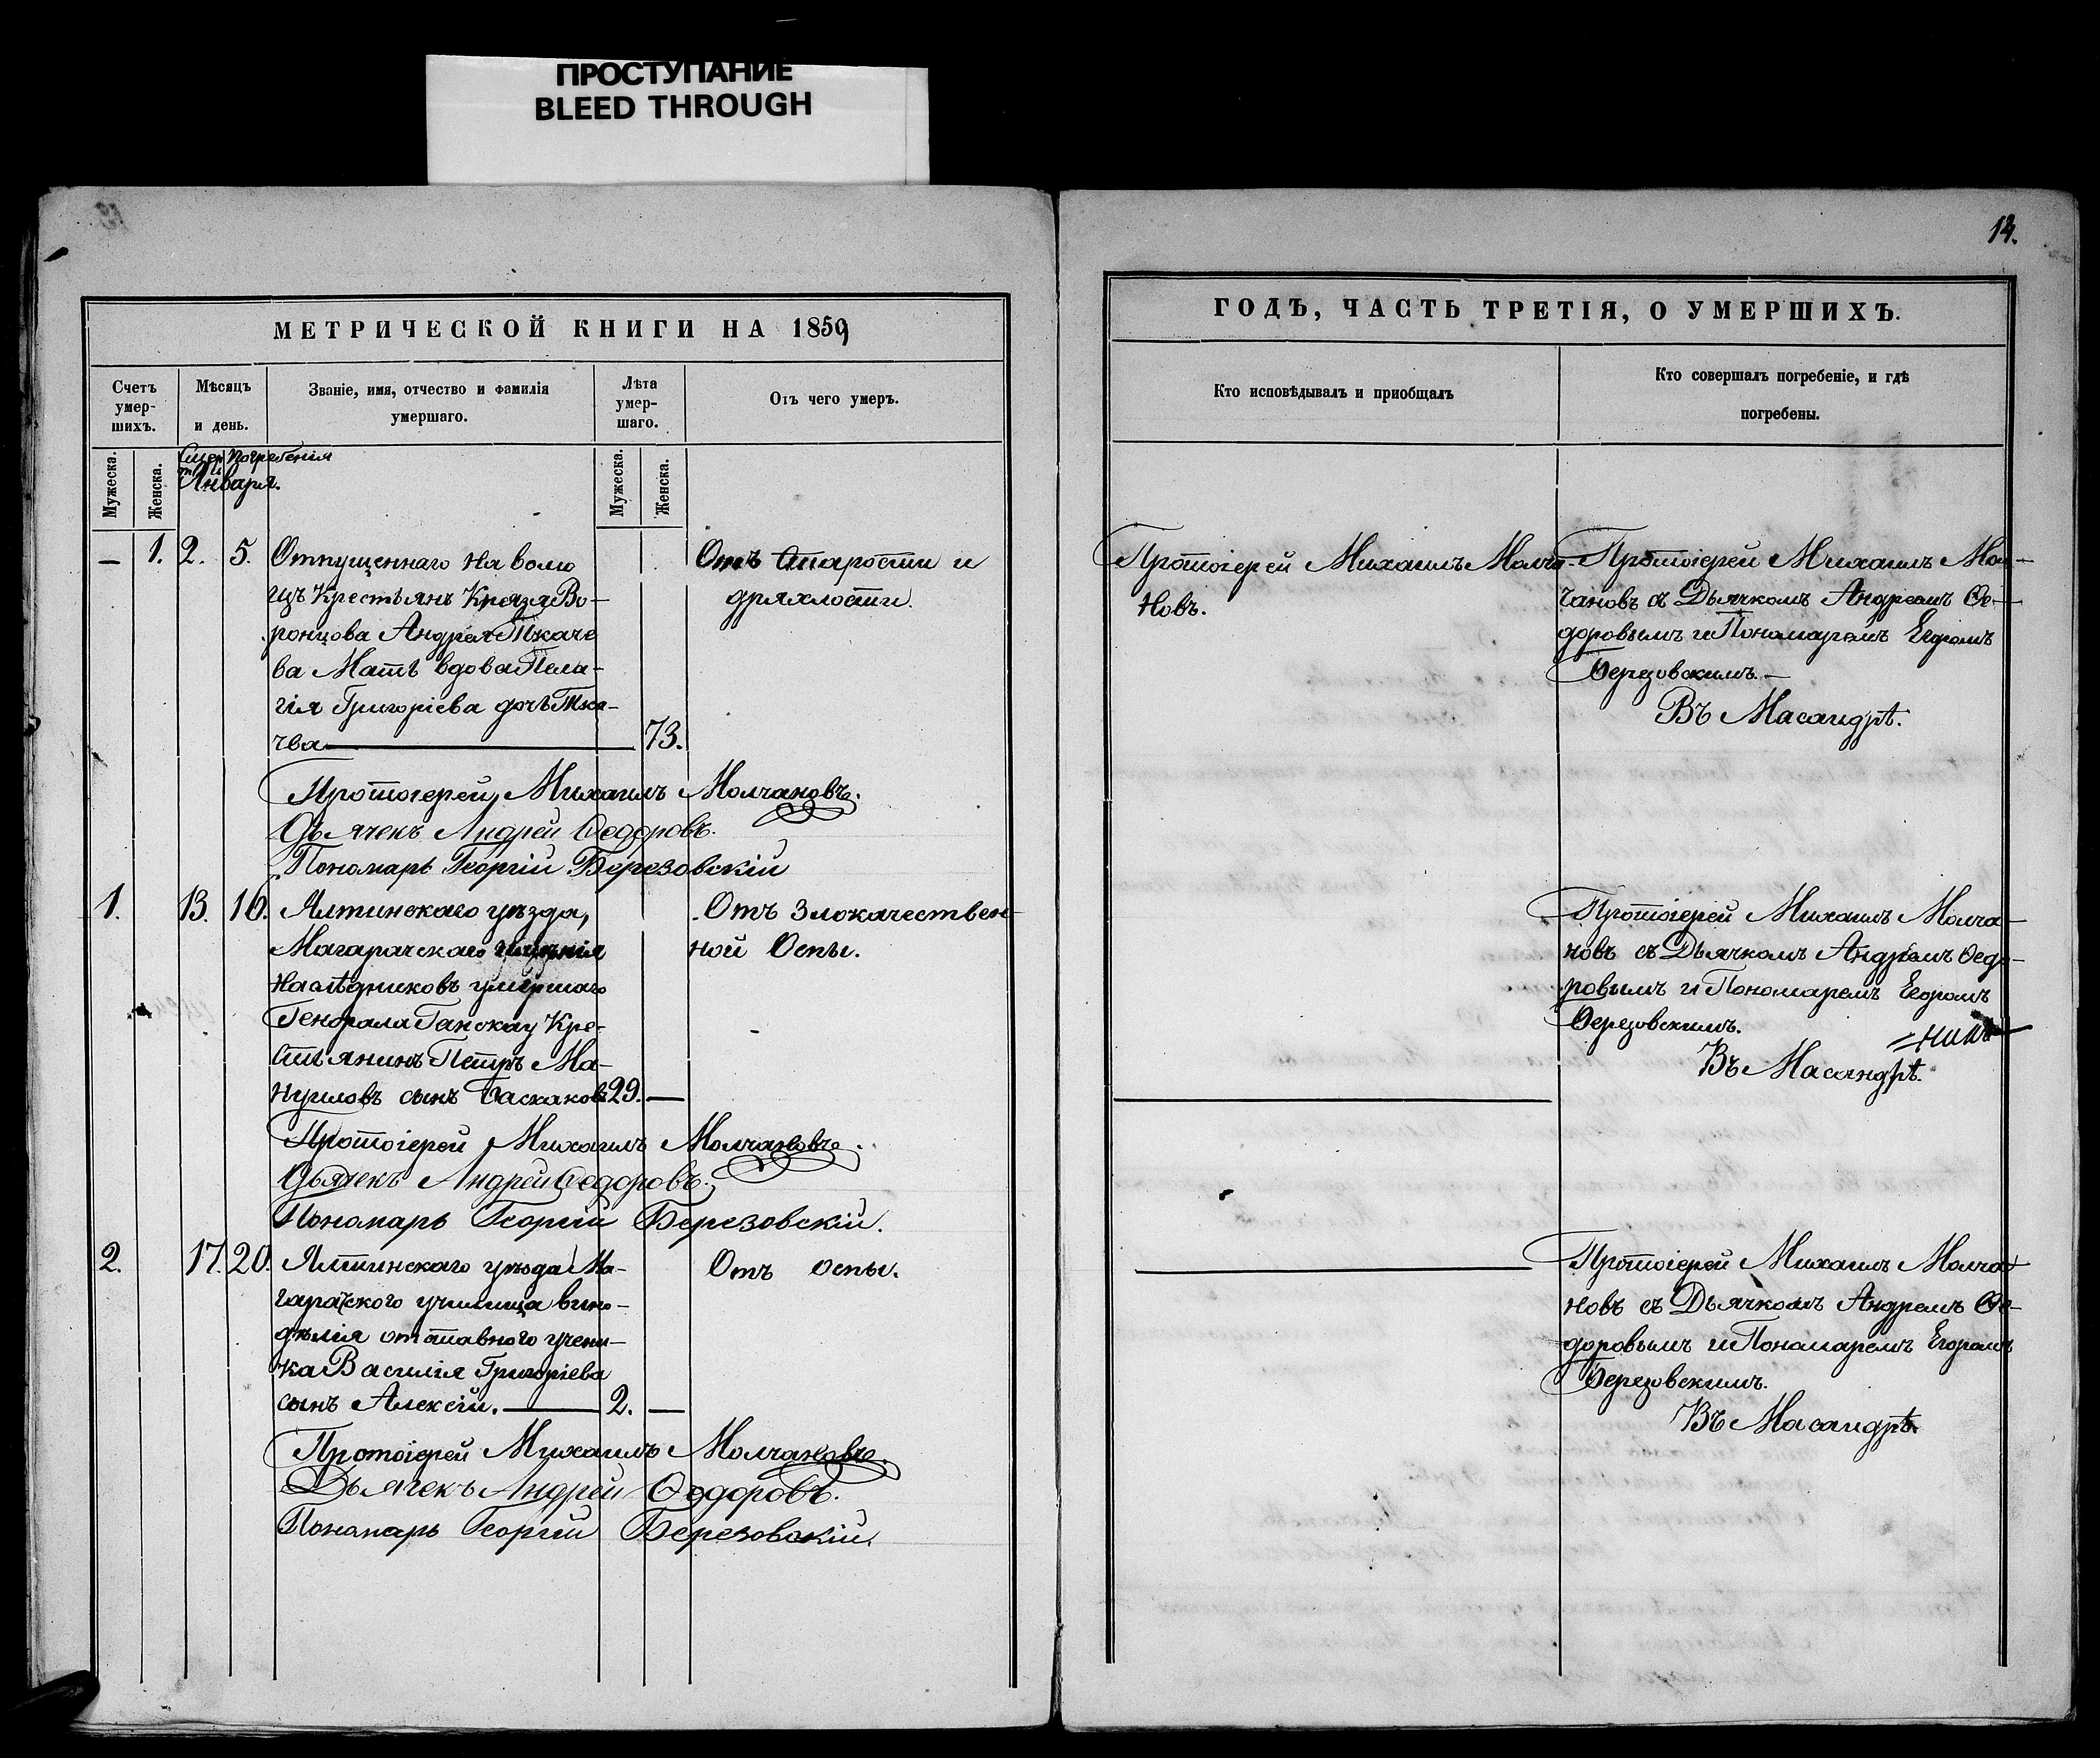 ПРОСТУПАНИЕ
BLEED THROUGH
МЕТРИЧЕСКОЙ КНИГИ НА 1859
Счетъ умер-шихъ.
Мѣсяцъ и день.
Званіе, имя, отчество и фамилія
умершаго.
Лѣта умер-шаго.
Отъ чего умеръ.
Мужеска.
Женска.
Смерти
Погребенія
Января.
Мужеска.
Женска.
— 1. 2. 5. Отпущеннаго на волю
изъ Крестьянъ Князя Во-
ронцова Андрея Ткаче
ва Мать вдова Пела-
гія Григоріева дочь Тка-
чва 73.
Отъ старости и
дряхлости.
Протоіерей Михаилъ Молчановъ.
Дьячекъ Андрей Ѳедоровъ.
Пономарь Георгій Березовскій
1. 13. 16. Ялтинскаго уѣзда,
Магарачскаго имѣнія
наслѣдниковъ умершаго
Генерала Ганскау Кре-
стьянинъ Петръ Ма-
нуиловъ сынъ Баскаковъ 29. —
Отъ злокачествен-
ной Оспы.
Протоіерей Михаилъ Молчановъ.
Дьячекъ Андрей Ѳедоровъ.
Пономарь Георгій Березовскій.
2. 17. 20. Ялтинскаго уѣзда Ма-
гарачского училища вино-
дѣлія отставного учени-
ка Василія Григоріева
сынъ Алексій. — 2. —
Отъ оспы.
Протоіерей Михаилъ Молчановъ.
Дьячекъ Андрей Ѳедоровъ.
Пономарь Георгій Березовскій.
14.
ГОДЪ, ЧАСТЬ ТРЕТІЯ, О УМЕРШИХЪ.
Кто исповѣдывалъ и приобщалъ
Кто совершалъ погребеніе, и гдѣ
погребены.
Протоіерей Михаилъ Молча-
новъ.
Протоіерей Михаилъ Мол-
чановъ съ Дьячкомъ Андреемъ Ѳе-
доровымъ и Пономаремъ Егоромъ
Березовскимъ. —
Въ Масандрѣ.
Протоіерей Михаилъ Молча-
новъ съ Дьячкомъ Андреемъ Ѳедо-
ровымъ и Пономаремъ Егоромъ
Березовскимъ.
Въ Масандрѣ.
Протоіерей Михаилъ Молча-
новъ съ Дьячкомъ Андреемъ Ѳе-
доровымъ и Пономаремъ Егоромъ
Березовскимъ.
Въ Масандрѣ.